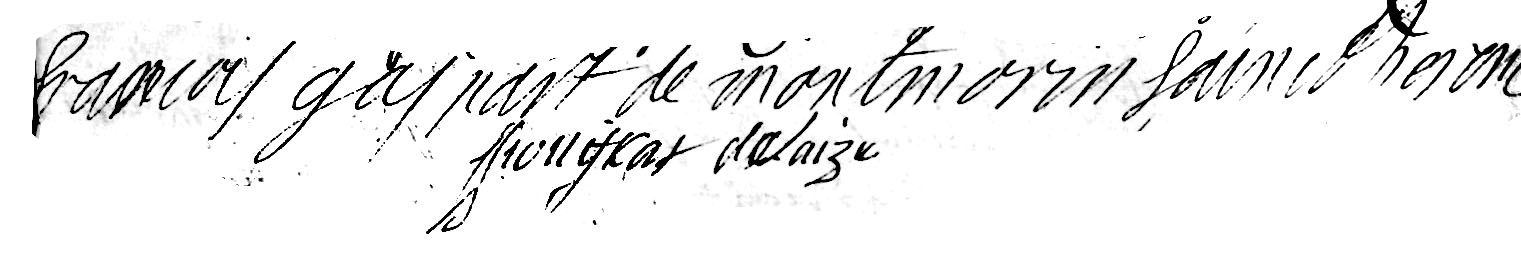 francois gaspart de montmorin sainct herem
delaizer